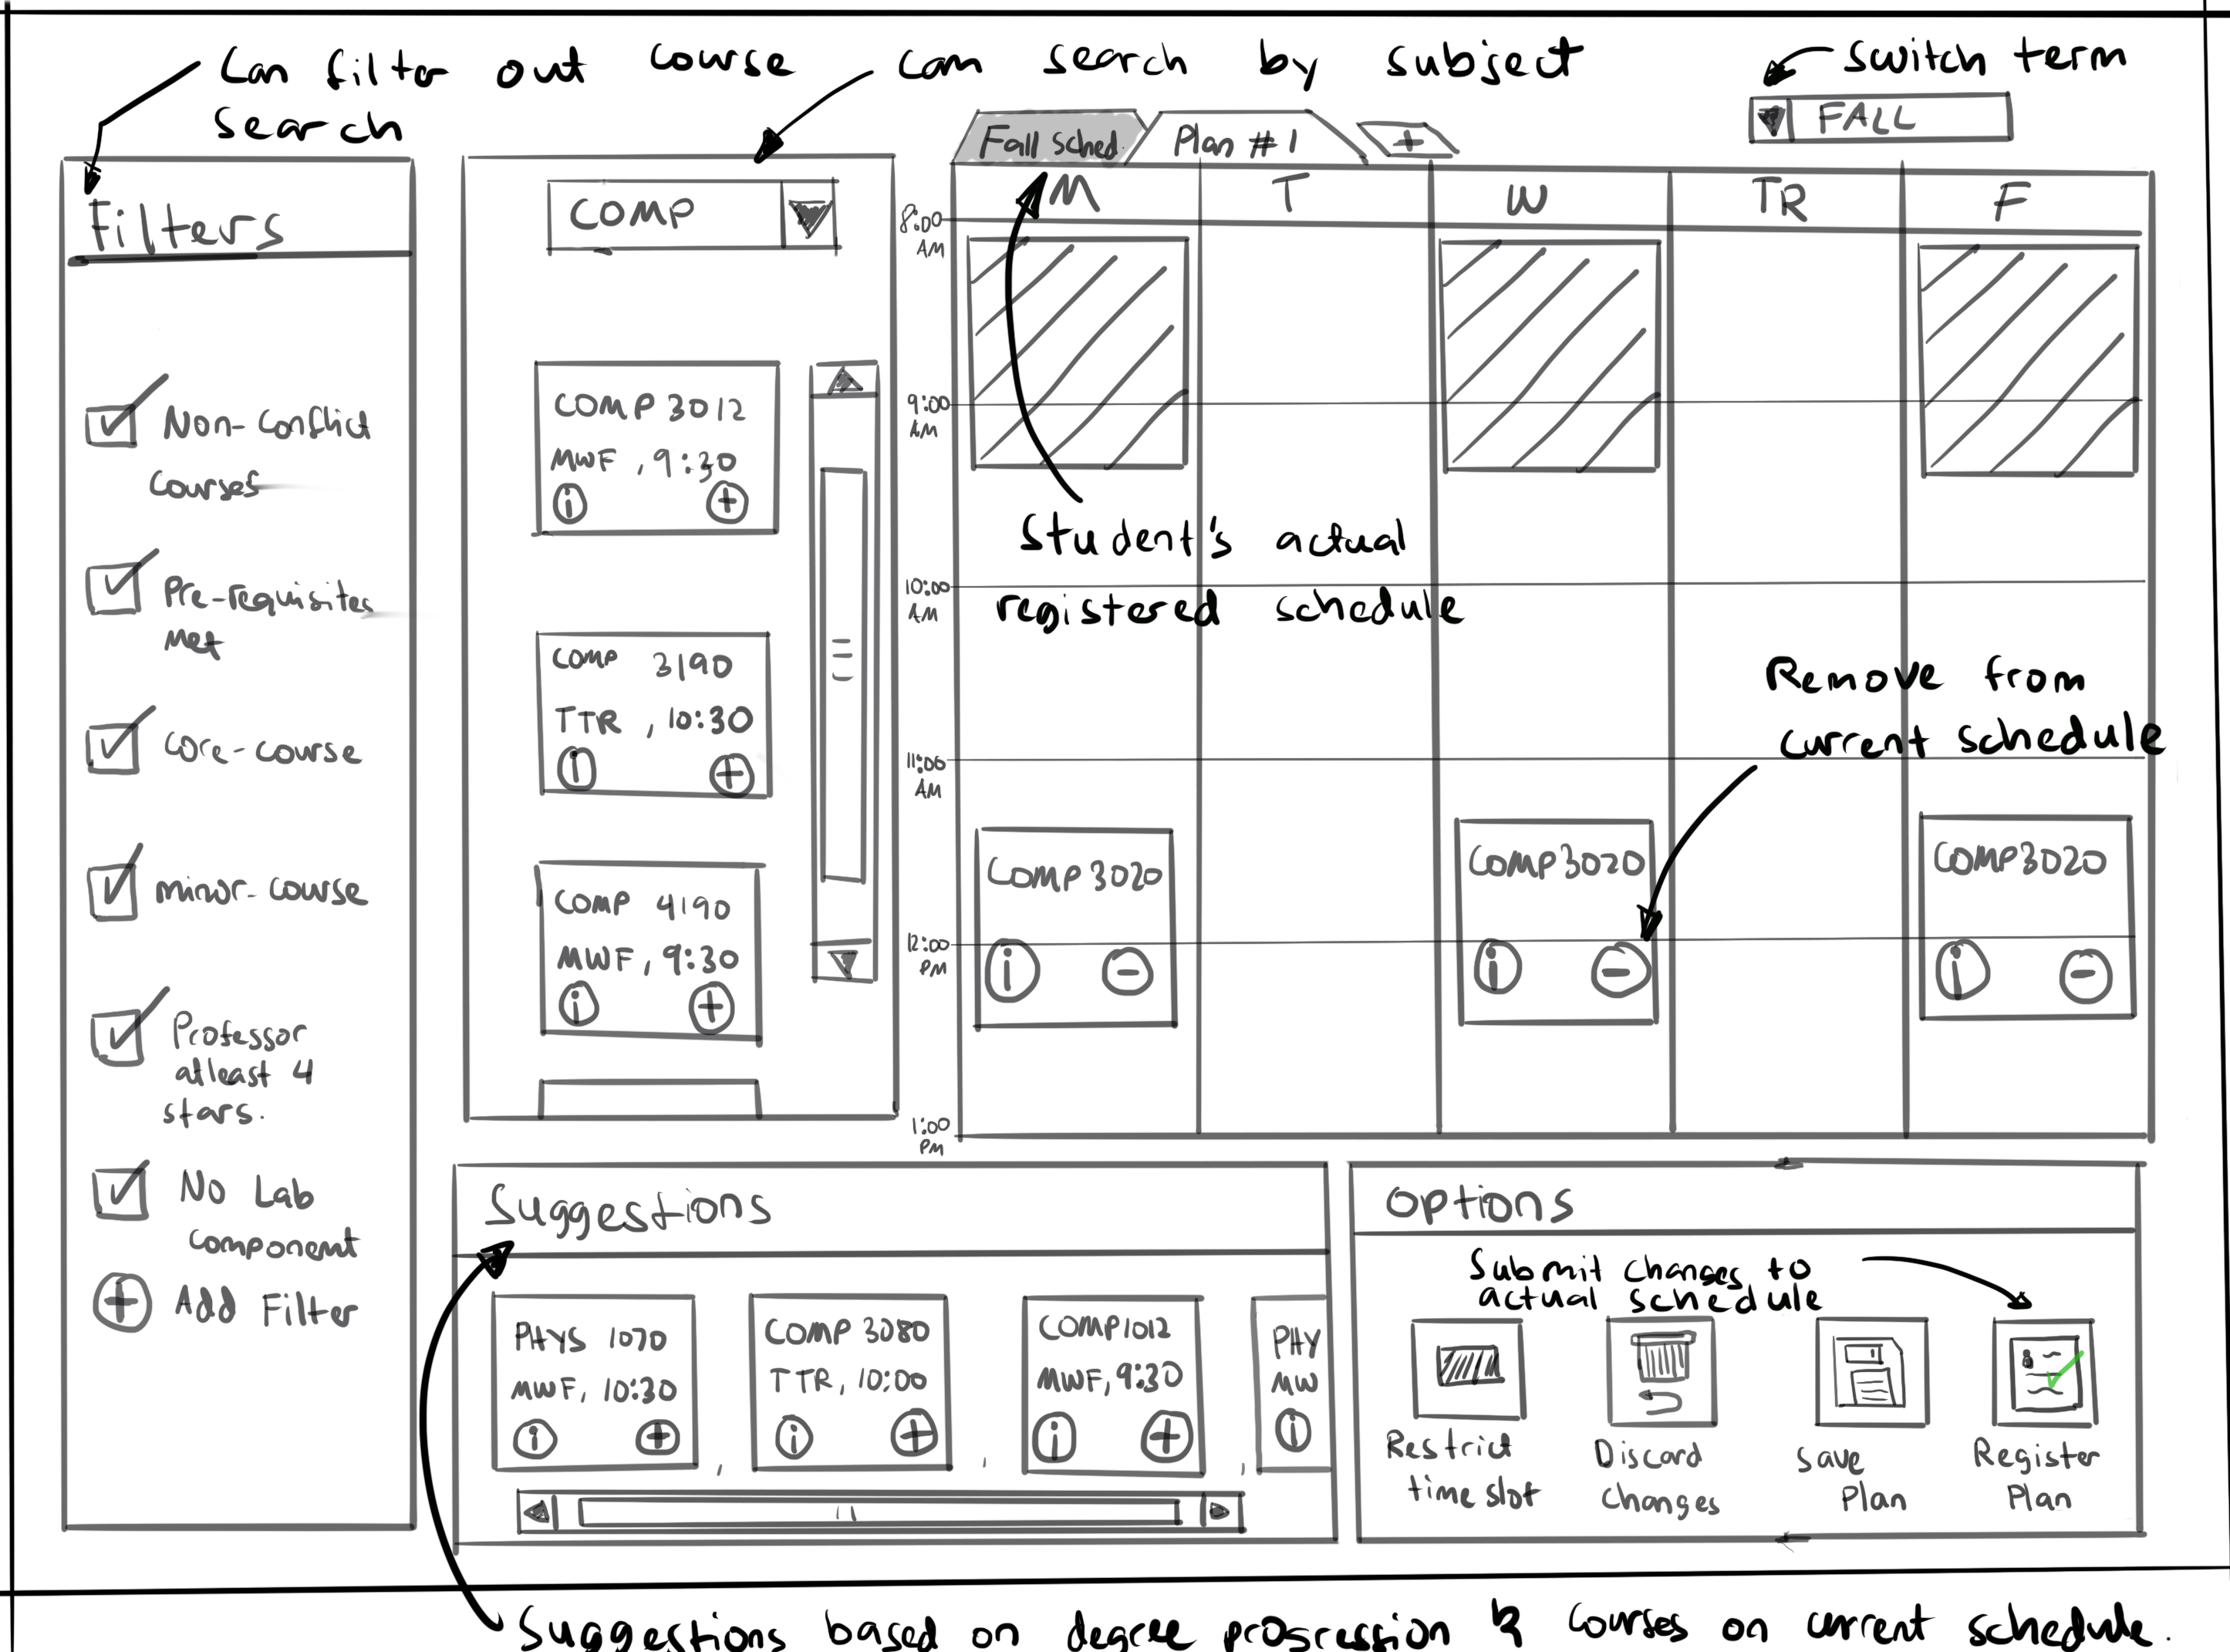 Can filter out course
search
can search by subject
switch term
FALL
Fall Sched.
Plan #1
+
Filters
Non-Conflict
Courses
Pre-requisites
Met
Core-course
minor-course
Professor
atleast 4
stars.
No Lab
Component
+ Add Filter
COMP
COMP 3012
MWF, 9:30
i +
COMP 3190
TTR, 10:30
i +
COMP 4190
MWF, 9:30
i +
M T W TR F
8:00
AM
9:00
AM
10:00
AM
11:00
AM
12:00
PM
1:00
PM
Student's actual
registered schedule
Remove from
current schedule
COMP3020
i -
COMP3020
i -
COMP3020
i -
Suggestions
PHYS 1070
MWF, 10:30
i +
COMP 3080
TTR, 10:00
i +
COMP1012
MWF, 9:30
i +
PHY
MW
i
Options
Submit changes to
actual schedule
Restrict
time slot
Discard
Changes
Save
Plan
Register
Plan
Suggestions based on degree progression & courses on current schedule.